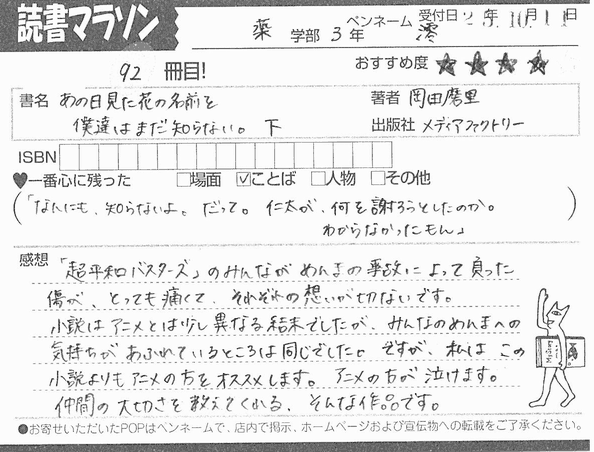 読書マラソン
薬 学部 3 年 ペンネーム 澪 受付日 25年10月11日
92 冊目! おすすめ度 ★★★★
書名 あの日見た花の名前を
僕達はまだ知らない。 下
著者 岡田磨里
出版社 メディアファクトリー
ISBN
♥一番心に残った □場面 ☑ことば □人物 □その他
(「なんにも、知らないよ。だって。仁太が、何を謝ろうとしたのか。
わからなかったもん」)
感想 「超平和バスターズ」のみんながめんまの事故によって負った
傷が、とっても痛くて、それぞれの想いが切ないです。
小説はアニメとは少し異なる結末でしたが、みんなのめんまへの
気持ちがあふれているところは同じでした。ですが、私は この
小説よりもアニメの方をオススメします。アニメの方が泣けます。
仲間の大切さを教えてくれる、そんな作品です。
●お寄せいただいたPOPはペンネームで、店内で掲示、ホームページおよび宣伝物への転載をご了承ください。